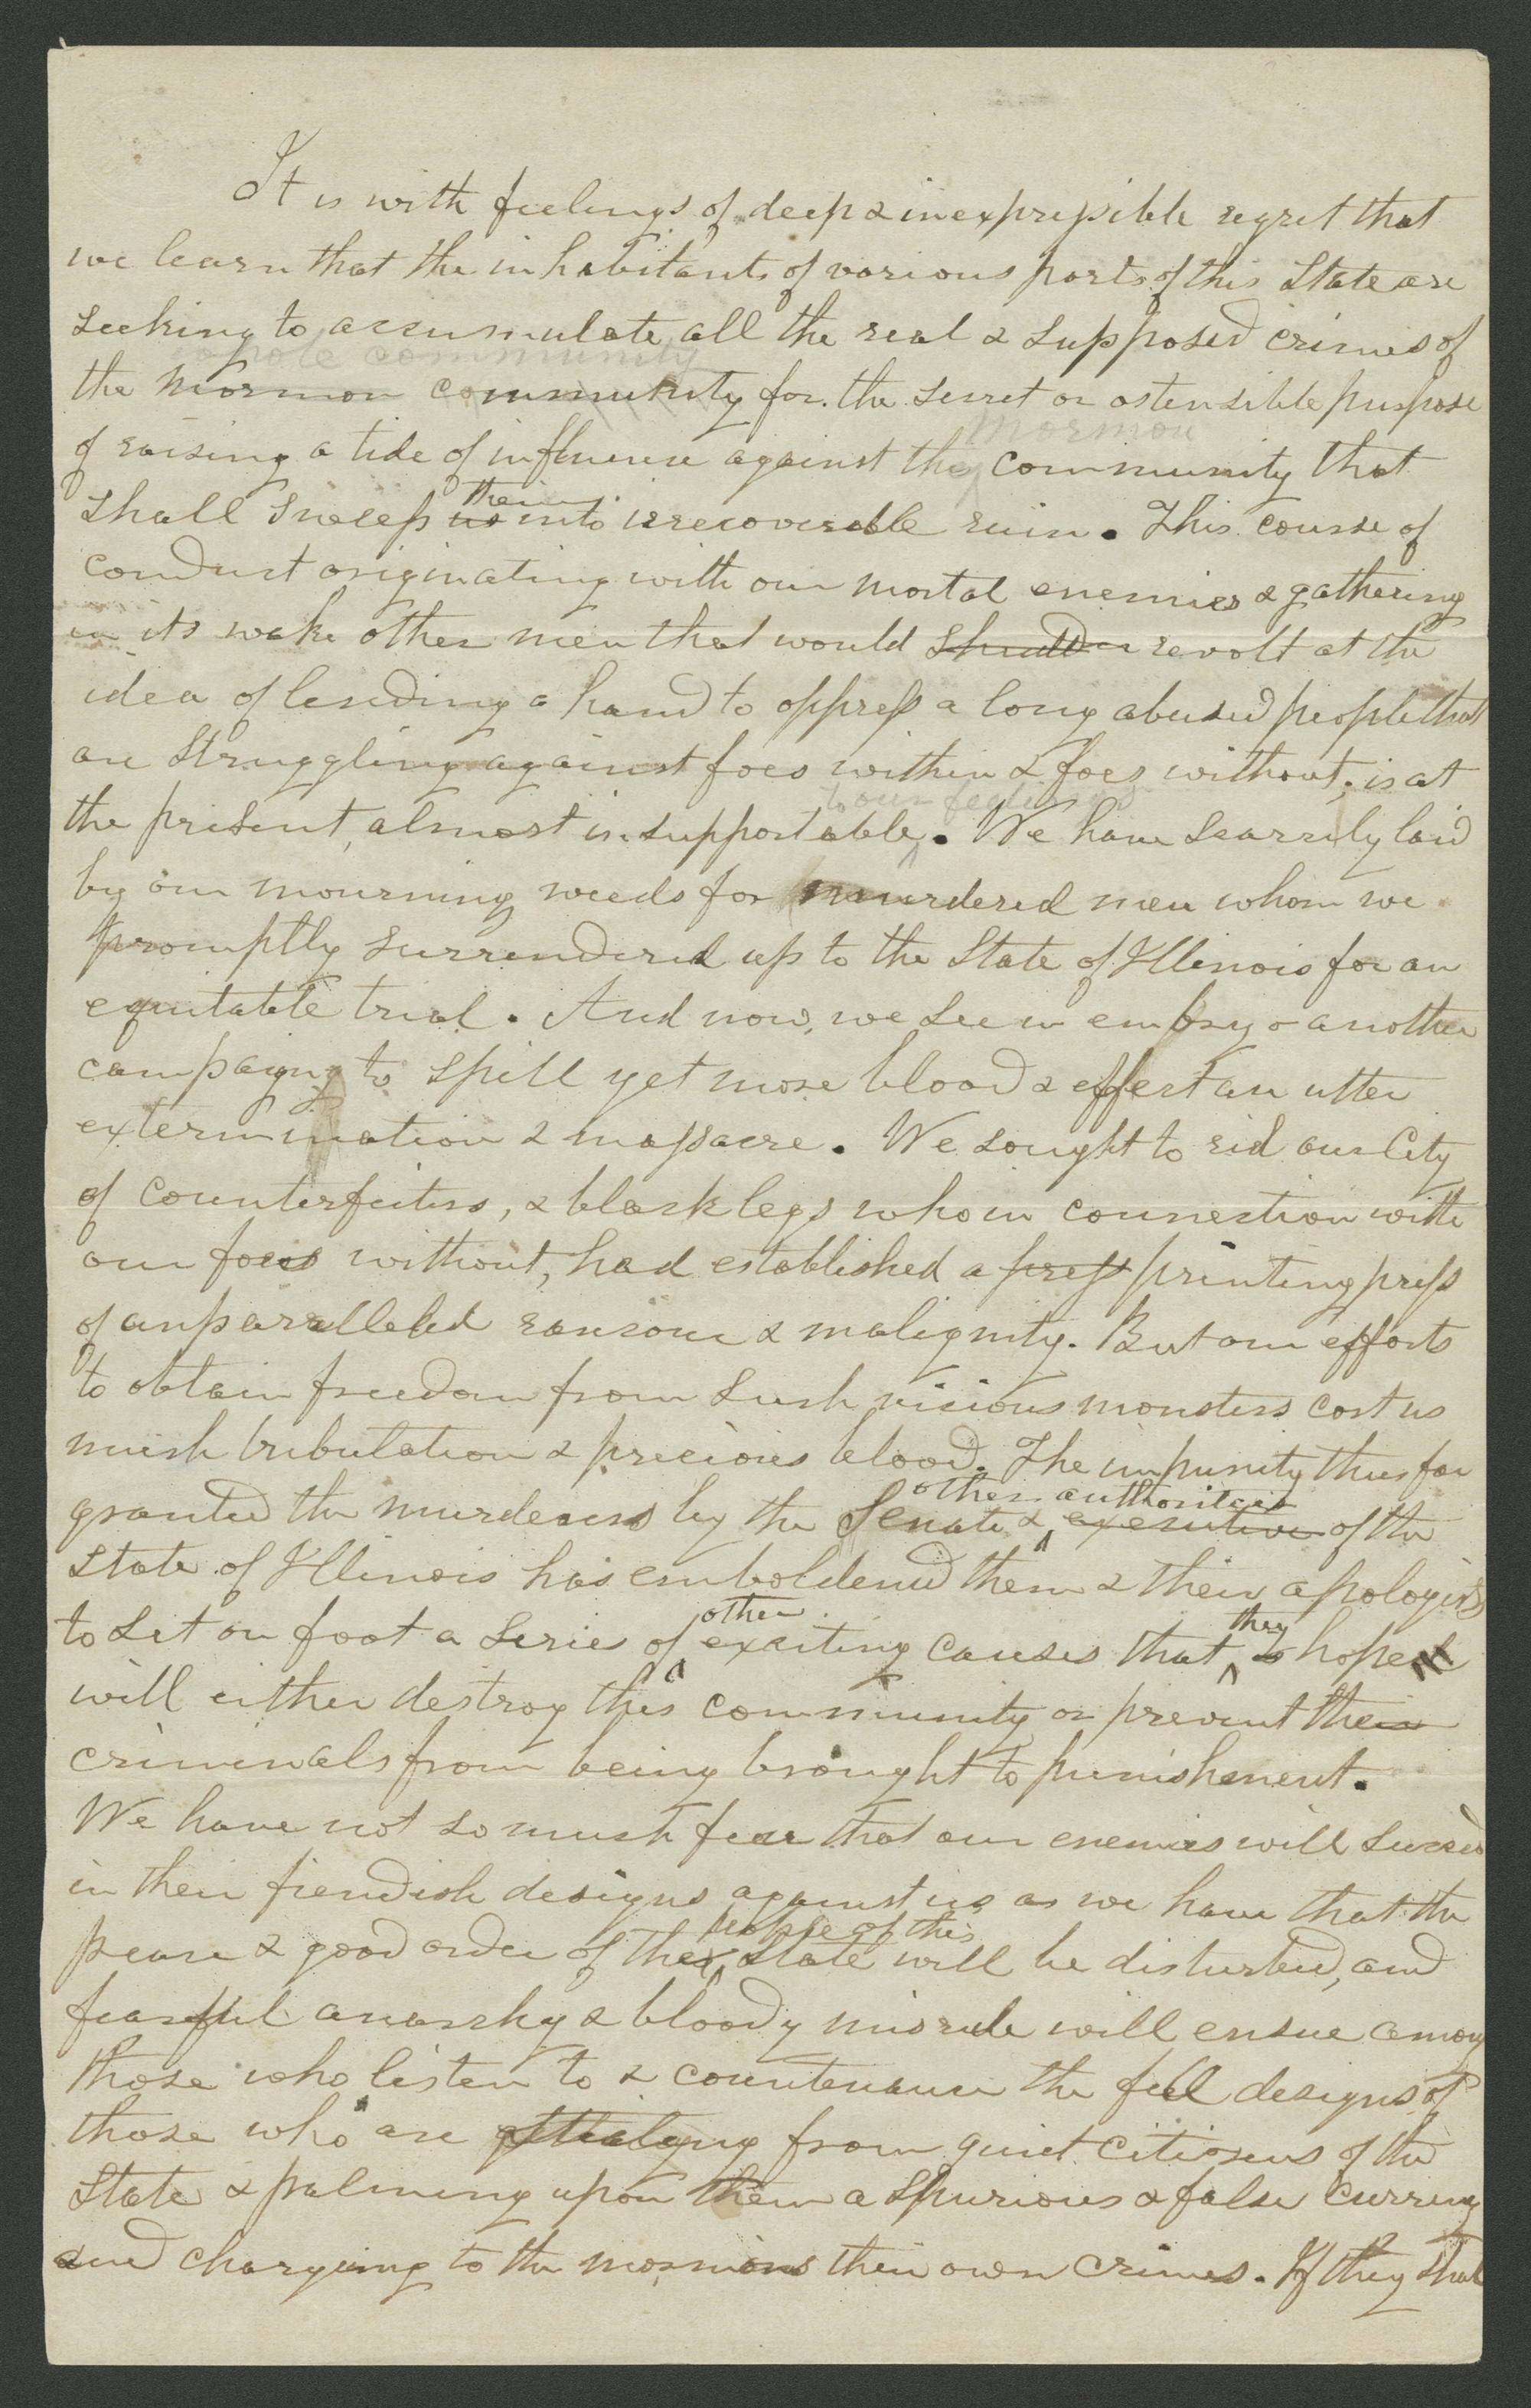 It is with feelings of deep & inexpressible regret that
we learn that the inhabitants of various parts of this State are
seeking to accumulate all the real & supposed crimes of
whole community
the mormon community for the secret or ostensible purpose
mormon
of raising a tide of influence against the community that
them
shall sweep us into irrecoverable ruin. This course of
conduct originating with our mortal enemies & gathering
in its wake other men that would shudder revolt at the
idea of lending a hand to oppress a long abused people that
are struggling against foes within & foes without; is at
to our feelings
the present, almost insupportable. We have scarcely laid
by our mourning weeds for murdered men whom we
promptly surrendered up to the State of Illinois for an
equitable trial. And now, we see in embryo another
campaigng to spill yet more blood & effect an utter
extermination & massacre. We sought to rid our City
of counterfeiters, & blacklegs who in connection with
our foes without, had established a press printing press
of unparalleled rancour & malignity. But our efforts
to obtain freedom from such vicious monsters cost us
much tribulation & precious blood. The impunity thus far
other authorities
granted the murderers by the Senate & executive of the
State of Illinois has emboldened them & their apologists
other they
to set on foot a serie of exciting causes that hoped
will either destroy this community or prevent their
criminals from being brought to punishment.
We have not so much fear that our enemies will succeed
in their fiendish designs against us as we have that the
people of this
peace & good order of the State will be disturbed, and
fearful anarchy & bloody misrule will ensue among
those who listen to & countenance the fell designs of
those who are stealing from quiet citizens of the
State & palming upon them a spurious & false currency
and charging to the mormons their own crimes. If they shal